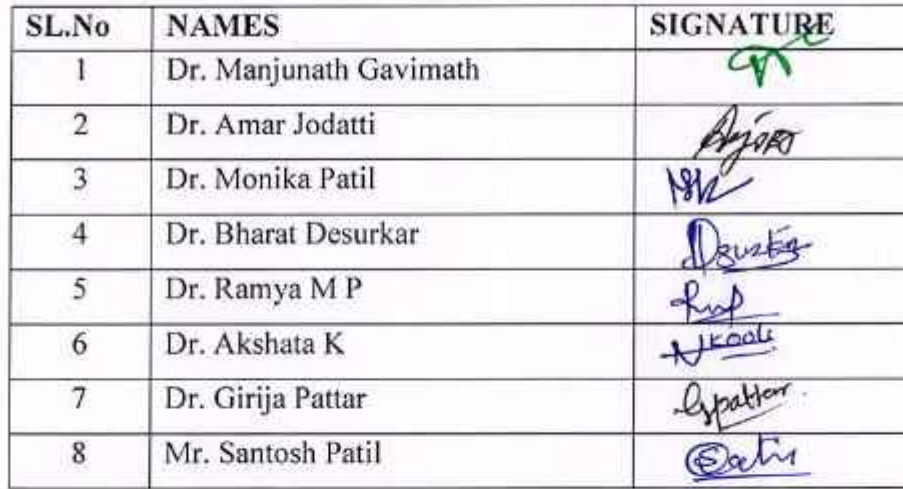 SL.No NAMES SIGNATURE
1 Dr. Manjunath Gavimath
2 Dr. Amar Jodatti
3 Dr. Monika Patil
4 Dr. Bharat Desurkar
5 Dr. Ramya M P
6 Dr. Akshata K
7 Dr. Girija Pattar Gpattar
8 Mr. Santosh Patil